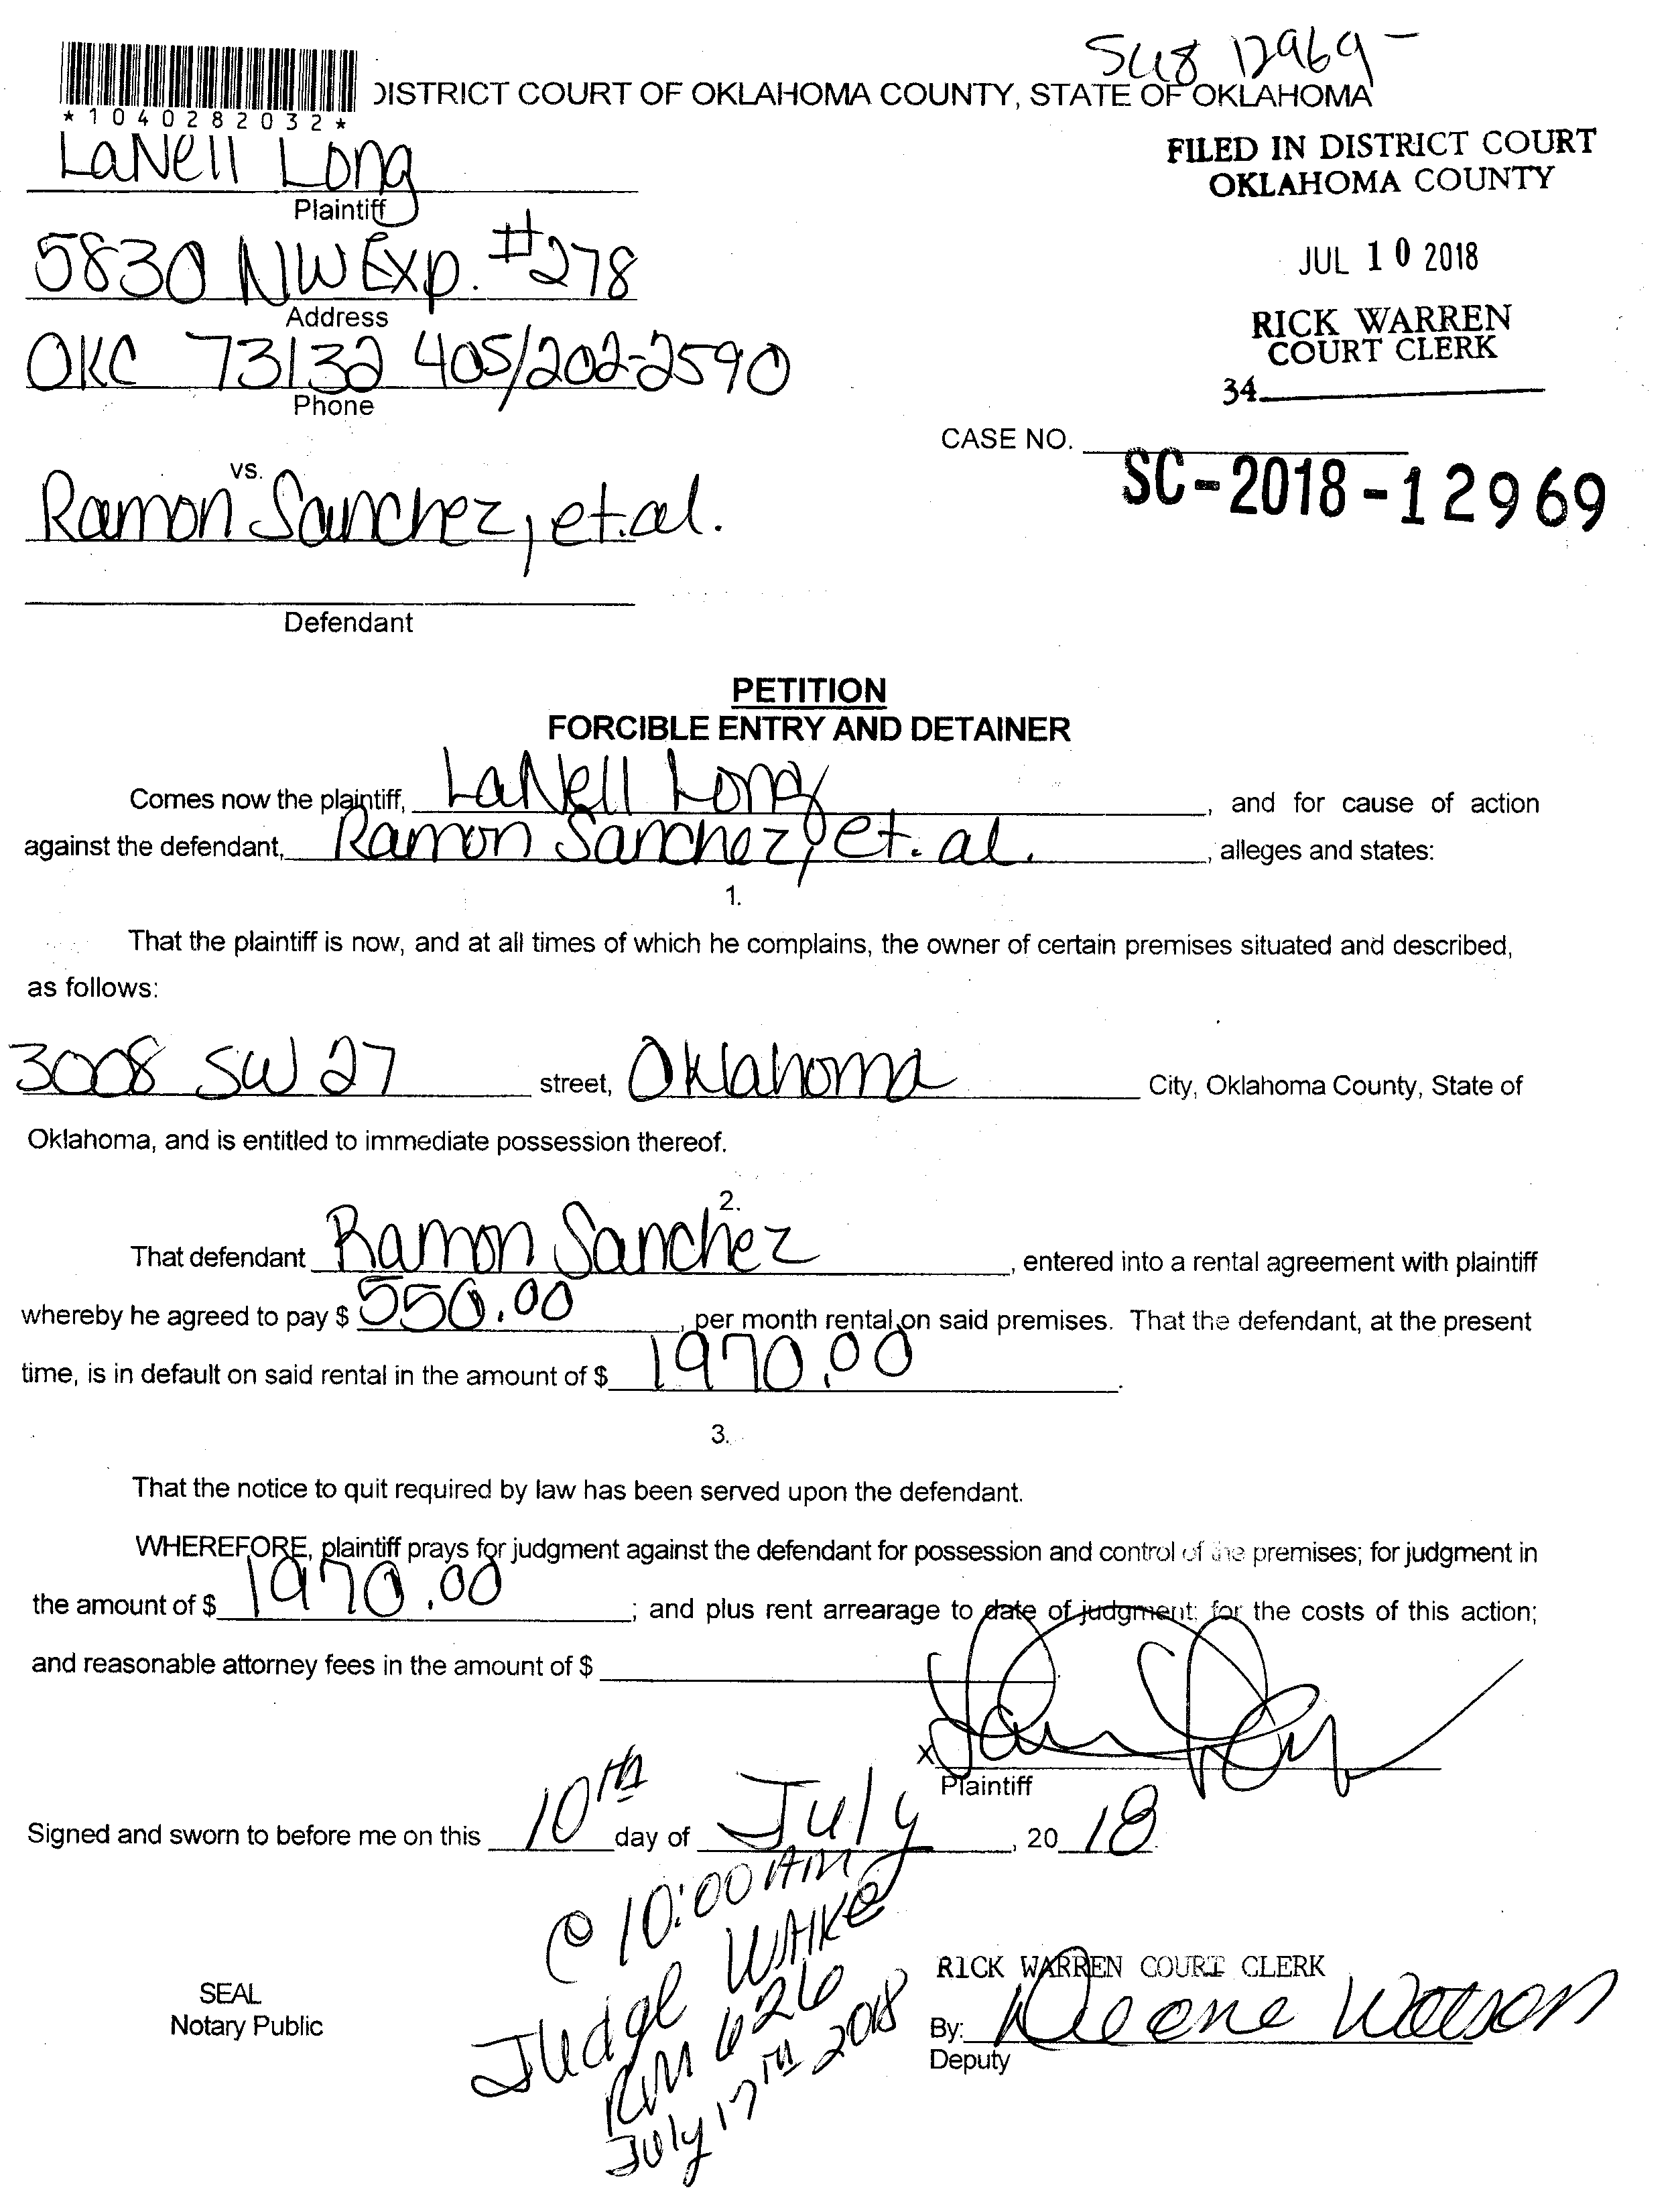 SC18 12969-
DISTRICT COURT OF OKLAHOMA COUNTY, STATE OF OKLAHOMA
*1040282032*
LaNell Long
Plaintiff
FILED IN DISTRICT COURT
OKLAHOMA COUNTY
5830 NW Exp. #278
Address
JUL 10 2018
OKC 73132 405/202-2590
Phone
RICK WARREN
COURT CLERK
34
CASE NO.
SC-2018-12969
vs.
Ramon Sanchez, et.al.
Defendant
PETITION
FORCIBLE ENTRY AND DETAINER
Comes now the plaintiff, LaNell Long, and for cause of action
against the defendant, Ramon Sanchez, et. al., alleges and states:
1.
That the plaintiff is now, and at all times of which he complains, the owner of certain premises situated and described,
as follows:
3008 SW 27 street, Oklahoma City, Oklahoma County, State of
Oklahoma, and is entitled to immediate possession thereof.
2.
That defendant Ramon Sanchez, entered into a rental agreement with plaintiff
whereby he agreed to pay $ 550.00, per month rental on said premises. That the defendant, at the present
time, is in default on said rental in the amount of $ 1970.00.
3.
That the notice to quit required by law has been served upon the defendant.
WHEREFORE, plaintiff prays for judgment against the defendant for possession and control of the premises; for judgment in
the amount of $ 1970.00; and plus rent arrearage to date of judgment; for the costs of this action;
and reasonable attorney fees in the amount of $
x
Plaintiff
Signed and sworn to before me on this 10th day of July, 2018
@ 10:00 AM
Judge WAKE
RM 626
July 17TH 2018
SEAL
Notary Public
RICK WARREN COURT CLERK
By: Deane Watson
Deputy